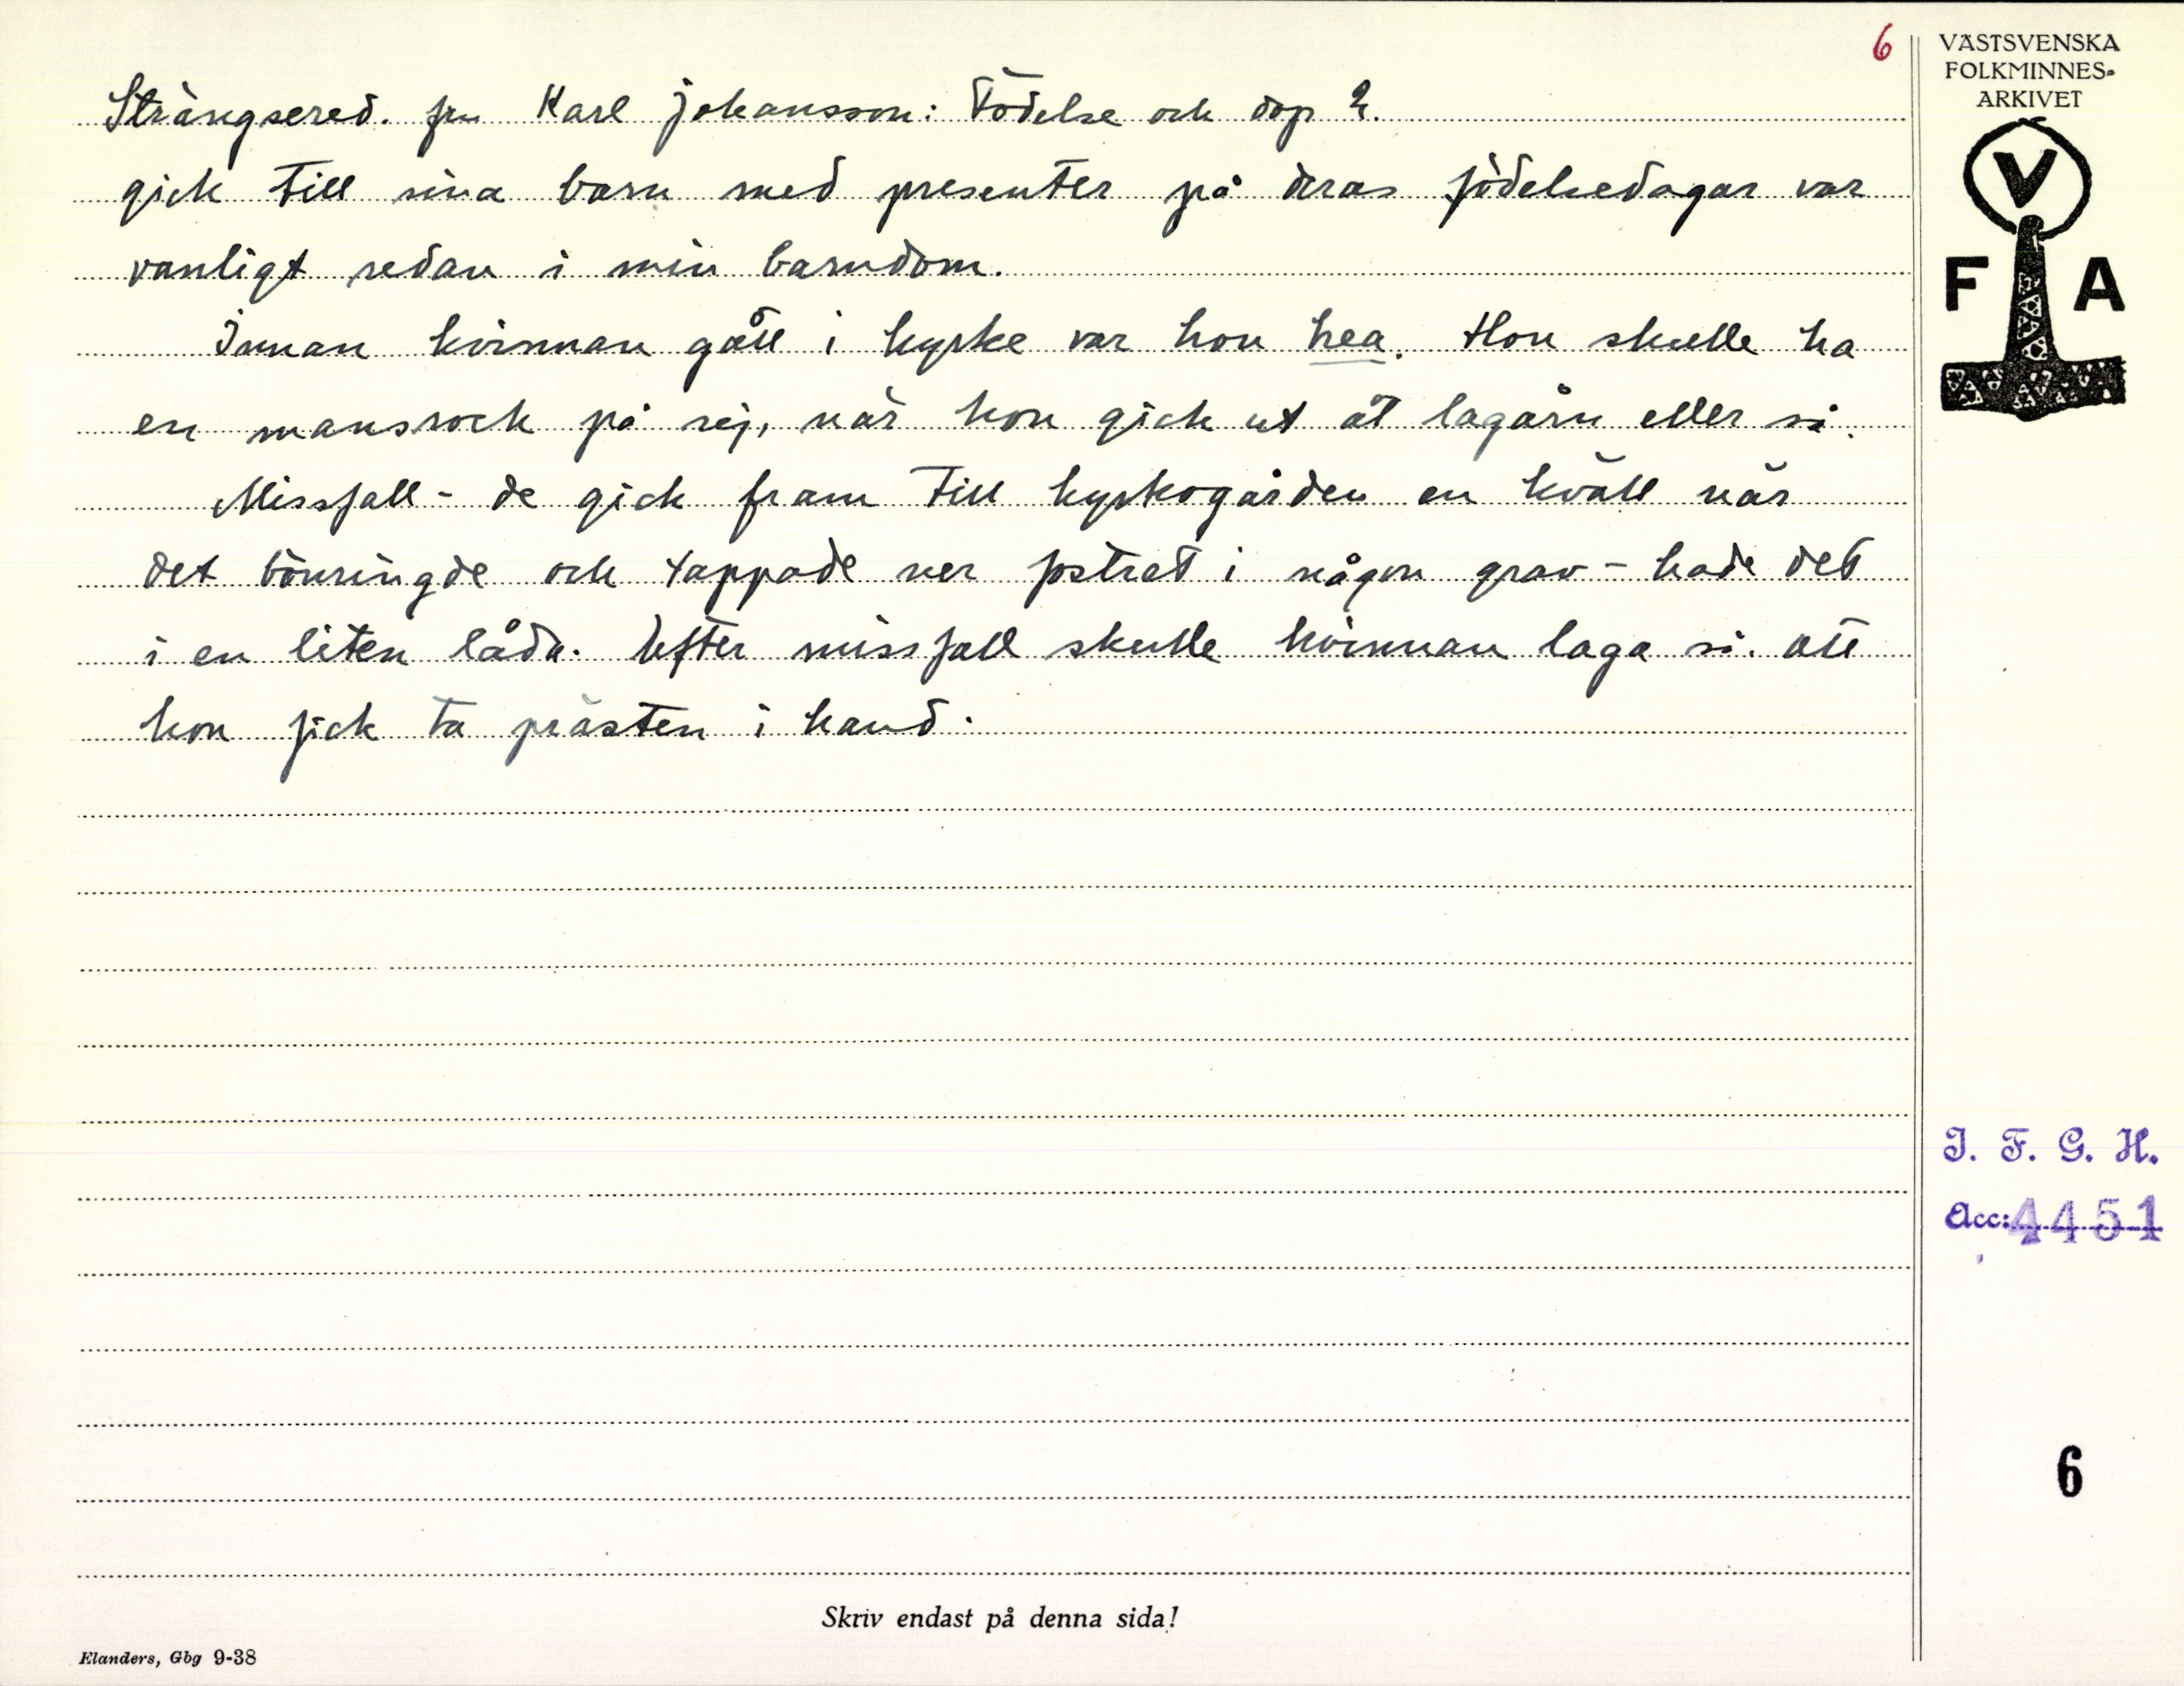 6
VÄSTSVENSKA
FOLKMINNES-
ARKIVET
V
F A
Strängsered. fru Karl Johansson: Födelse och dop 2.
gick till sina barn med presenter på deras födelsedagar var
vanligt redan i min barndom.
Innan kvinnan gått i kyrke var hon hea. Hon skulle ha
en mansrock på sej, när hon gick ut åt lagårn eller si.
Missfall - de gick fram till kyrkogården en kväll när
det bönringde och tappade ner fostret i någon grav - hade det
i en liten låda. Efter missfall skulle kvinnan laga si. att
hon fick ta prästen i hand.
I. F. G. H.
Acc: 4451
6
Skriv endast på denna sida!
Elanders, Gbg 9-38